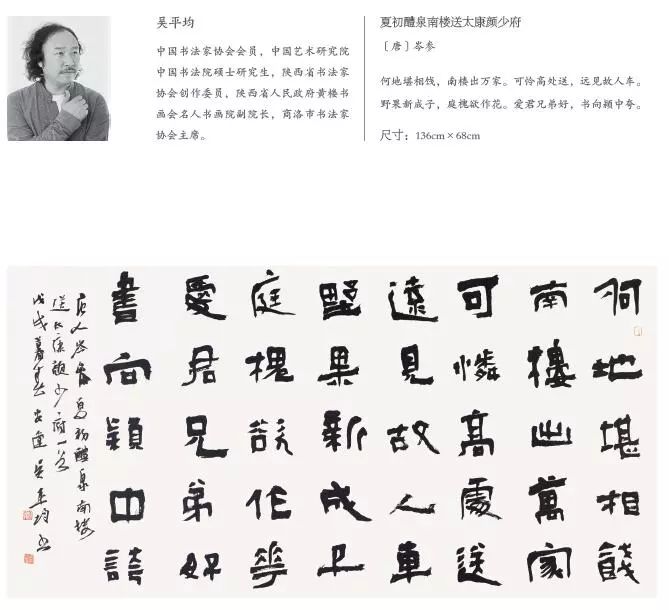 吴平均
中国书法家协会会员，中国艺术研究院
中国书法院硕士研究生，陕西省书法家
协会创作委员，陕西省人民政府黄楼书
画会名人书画院副院长，商洛市书法家
协会主席。
夏初醴泉南楼送太康颜少府
〔唐〕岑参
何地堪相饯，南楼出万家。可怜高处送，远见故人车。
野果新成子，庭槐欲作花。爱君兄弟好，书向颍中夸。
尺寸：136cm×68cm
何地堪相餞
南樓出萬家
可憐高處送
遠見故人車
墅果新成子
庭槐欲作花
愛君兄弟好
書向穎中誇
唐人岑參夏初醴泉南樓
送太康顏少府一首
戊戌暮夏吳平均書